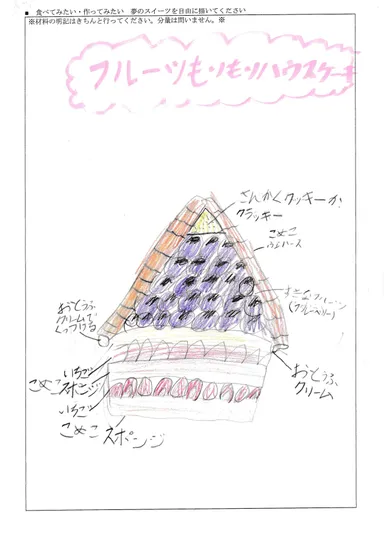 ■ 食べてみたい・作ってみたい 夢のスイーツを自由に描いてください
※材料の明記はきちんと行ってください。分量は問いません。※
フルーツもりもりハウスケーキ
さんかくクッキーか
クラッキー
こめこ
すきなフルーツ
(ブルーベリー)
おとうふ
クリームで
くっつける
いちご
こめこスポンジ
いちご
こめこ スポンジ
おとうふ
クリーム